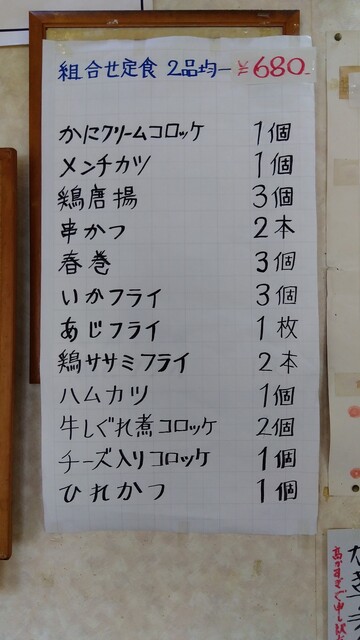 組合せ定食 2品均一 ¥680-
かにクリームコロッケ 1個
メンチカツ 1個
鶏唐揚 3個
串かつ 2本
春巻 3個
いかフライ 3個
あじフライ 1枚
鶏ササミフライ 2本
ハムカツ 1個
牛しぐれ煮コロッケ 2個
チーズ入りコロッケ 1個
ひれかつ 1個